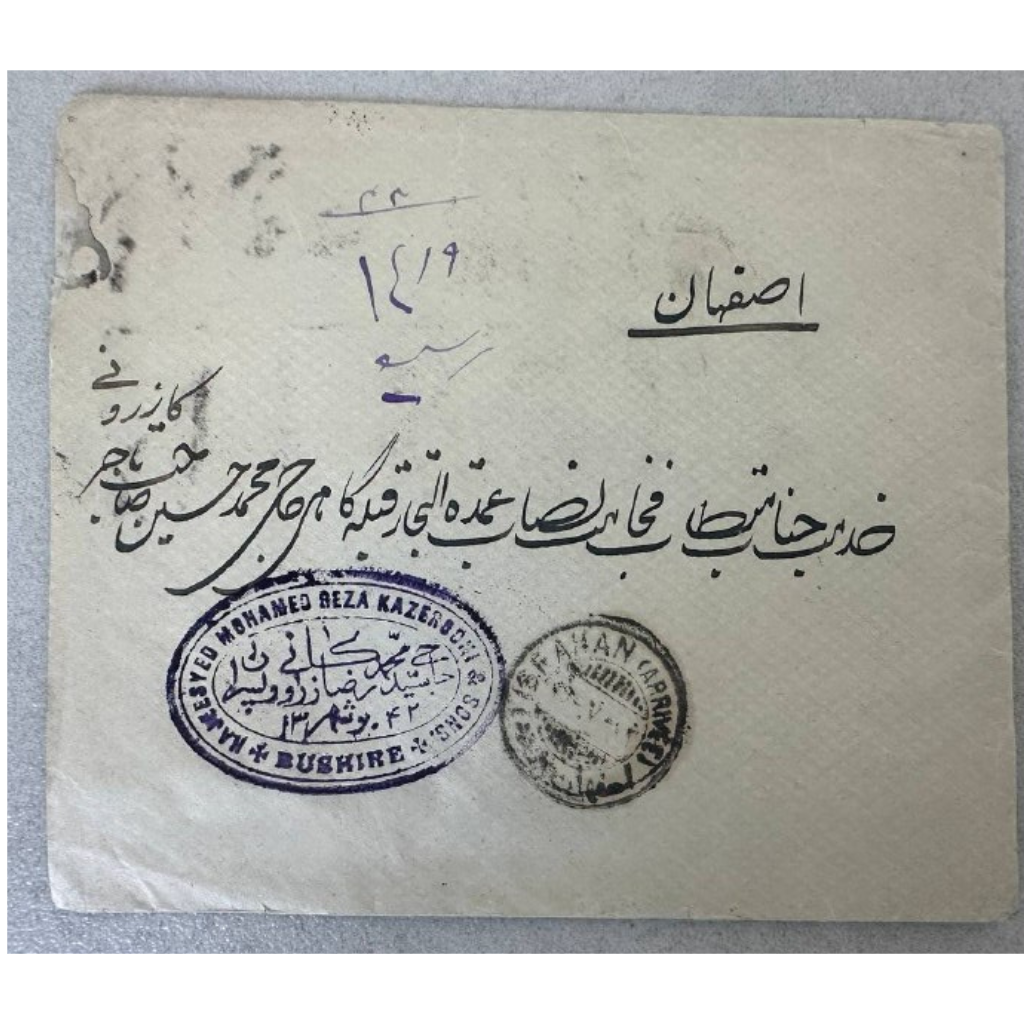 ۲۲
۱۴/۱۹
رسید
اصفهان
خدمت جناب مستطاب فخامت نصاب عمدة التجار قبله گاهی حاجی محمد حسین صاحب تاجر
کازرونی
HAJEE SYED MOHAMED REZA KAZEROONI & SONS.
حاجی سید محمد رضا کازرونی
۱۳۴۲ بوشهر
BUSHIRE
ISPAHAN (ARRIVÉE)
اصفهان